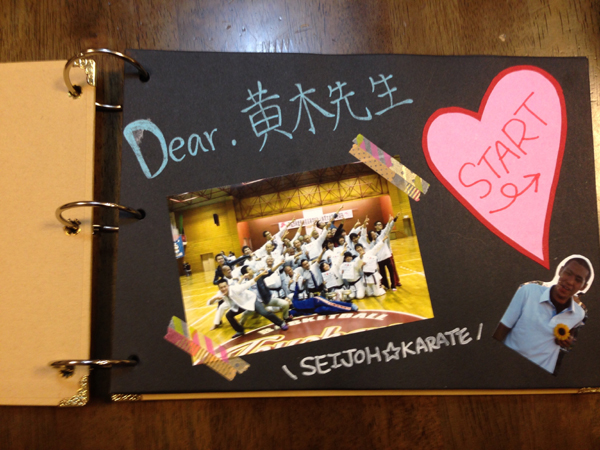 Dear. 黄木先生
START
BASKETBALL
\ SEIJOH☆KARATE /